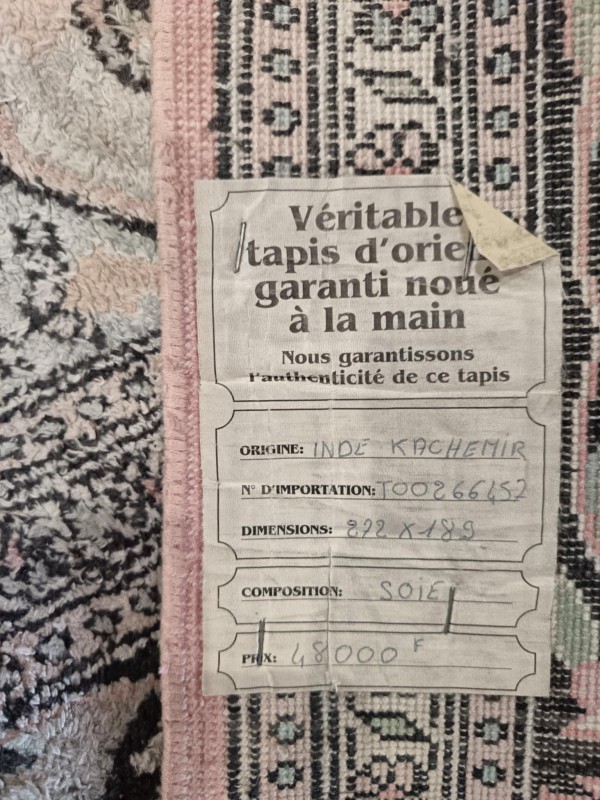 Véritable
tapis d'orie
garanti noué
à la main
Nous garantissons
l'authenticité de ce tapis
ORIGINE: INDE KACHEMIR
N° D'IMPORTATION: T00266457
DIMENSIONS: 272 X 189
COMPOSITION: SOIE
PRIX: 48000 F